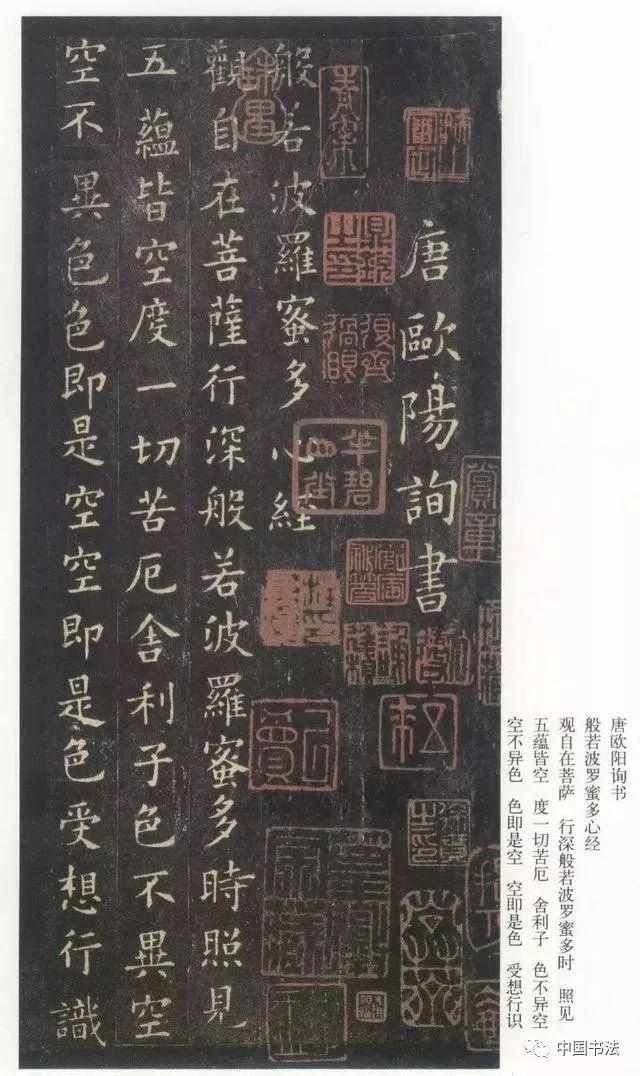 唐歐陽詢書
般若波羅蜜多心經
觀自在菩薩行深般若波羅蜜多時照見
五蘊皆空度一切苦厄舍利子色不異空
空不異色色即是空空即是色受想行識
唐欧阳询书
般若波罗蜜多心经
观自在菩萨　行深般若波罗蜜多时　照见
五蕴皆空　度一切苦厄　舍利子　色不异空
空不异色　色即是空　空即是色　受想行识
中国书法